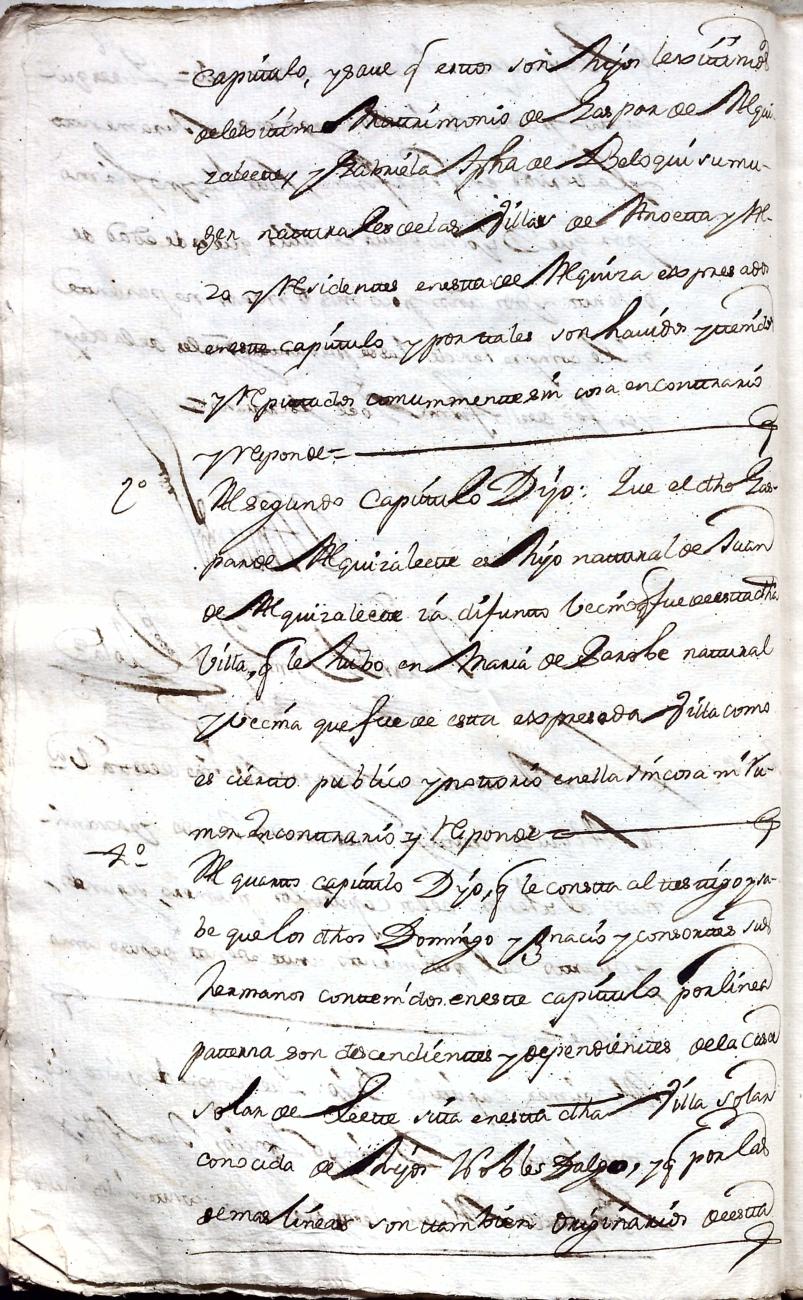 Capítulo, y save q estos son hijos lexitimos
de lexitimo Matrimonio de Gaspar de Alqui
zalecte, y Gabriela Jpha de Beloqui su mu-
ger naturales de las Villas de Anoeta y Al-
zo y Residentes en esta de Alquiza expresado
en este capítulo y por tales son havidos y tenidos
= y Reputados comunmente sin cosa en contrario
y rresponde =
2º Al segundo Capítulo Dijo: Que el dho Gas-
par de Alquizalecte es hijo natural de Juan
de Alquizalecte ia difunto Vecino q fue de esta dha
Villa, q le hubo en Maria de Garobe natural
y Vecina que fue de esta expresada Villa como
es cierto publico y notorio en ella sin cosa ni Ru-
mor En contrario y Responde =
4º Al quarto capítulo Dijo, q le consta al testigo y sa-
be que los dhos Domingo Ygnacio y consortes sus
hermanos contenidos en este capítulo por linea
paterna son descendientes y dependientes de la Casa
solar de Leete sita en esta dha Villa solar
conocida de hijos Nobles Dalgo, y q por las
demas líneas son tambien originarios de esta